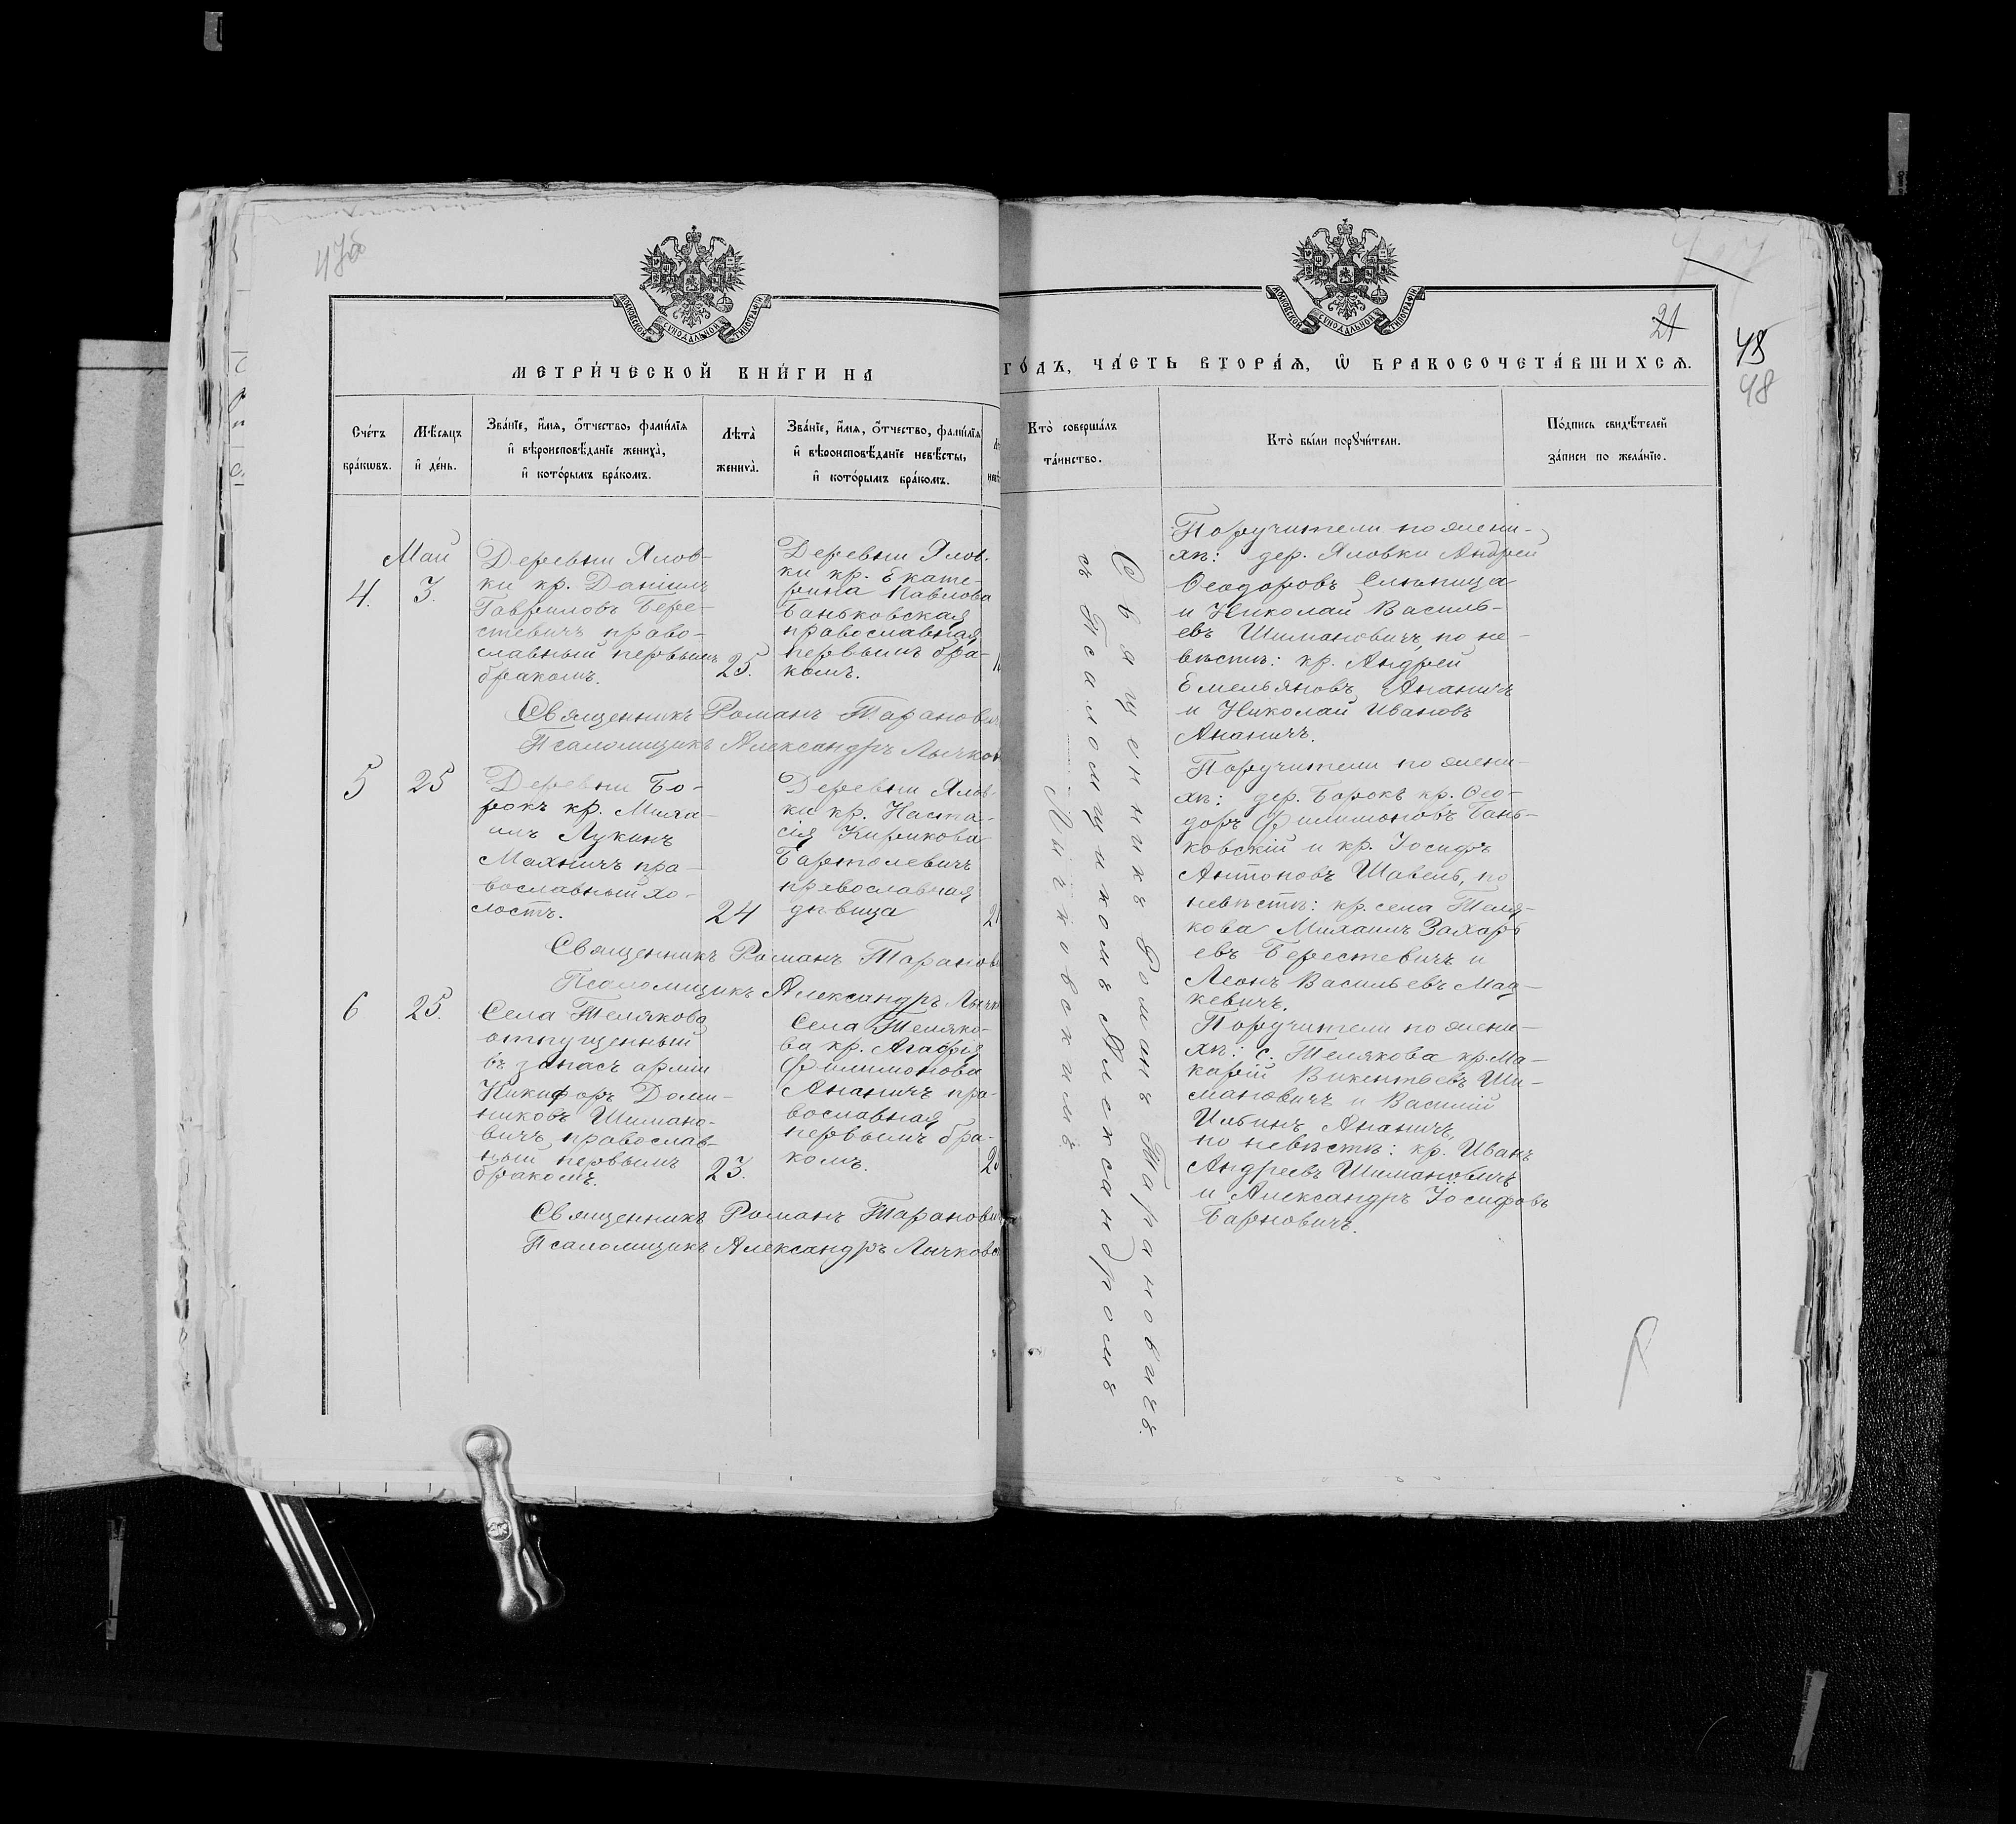 МЕТРИ́ЧЕСКОЙ КНИ́ГИ НА
Сче́тъ бра́кѡвъ.
Мѣ́сяцъ и҆ де́нь.
Зва́нїе, и҆́мя, ѻ҆́тчество, фами́лїя и҆ вѣроисповѣ́данїе жениха̀, и҆ кото́рымъ бра́комъ.
Лѣта̀ жениха̀.
Зва́нїе, и҆́мя, ѻ҆́тчество, фами́лїя и҆ вѣроисповѣ́данїе невѣ́сты, и҆ кото́рымъ бра́комъ.
Май
4.
3.
Деревни Ялов-
ки кр. Даніилъ
Гавриловъ Бере-
стевичъ право-
славный первымъ
бракомъ.
25.
Деревни Ялов-
ки кр. Екате-
рина Павлова
Баньковская
православная
первымъ бра-
комъ.
Священникъ Романъ Таранович
Псаломщикъ Александръ Лычков
5
25
Деревни Бо-
рокъ кр. Миха-
илъ Лукинъ
Махничъ пра-
вославный хо-
лостъ.
24
Деревни Ялов-
ки кр. Наста-
сія Кирикова
Бартолевичъ
православная
дѣвица
21
Священникъ Романъ Таранов
Псаломщикъ Александръ Лычк
6
25.
Села Телякова
отпущенный
въ запасъ арміи
Никифоръ Доми-
никовъ Шимано-
вичъ, православ-
ный первымъ
бракомъ.
23.
Села Теляко-
ва кр. Агафія
Филимонова
Ананичъ пра-
вославная
первымъ бра-
комъ.
Священникъ Романъ Таранович
Псаломщикъ Александръ Лычковс
ГО́ДЪ, ЧА́СТЬ ВТОРА́Я, Ѽ БРАКОСОЧЕТА́ВШИХСЯ.
21
48
48
Кто̀ соверша́лъ та́инство.
Кто̀ бы́ли порꙋчи́тели.
По́дпись свидѣ́телей за́писи по жела́нїю.
Священникъ Романъ Тарановичъ
съ Псаломщикомъ Александромъ
Лычковскимъ
Поручители по жени-
хѣ: дер. Яловки Андрей
Ѳеодоровъ Слѣпица
и Николай Василь-
евъ Шимановичъ, по не-
вѣстѣ: кр. Андрей
Емельяновъ Ананичъ
и Николай Ивановъ
Ананичъ.
Поручители по жени-
хѣ: дер. Борокъ кр. Ѳео-
доръ Филимоновъ Бань-
ковскій и кр. Іосифъ
Антоновъ Шавель, по
невѣстѣ: кр. села Теля-
кова Михаилъ Захарь
евъ Берестевичъ и
Леонъ Васильевъ Мац-
кевичъ.
Поручители по жени-
хѣ: с. Телякова кр. Ма-
карій Викентьевъ Ши-
мановичъ и Василій
Ильинъ Ананичъ,
по невѣстѣ: кр. Иванъ
Андреевъ Шимановичъ
и Александръ Іосифовъ
Барновичъ.